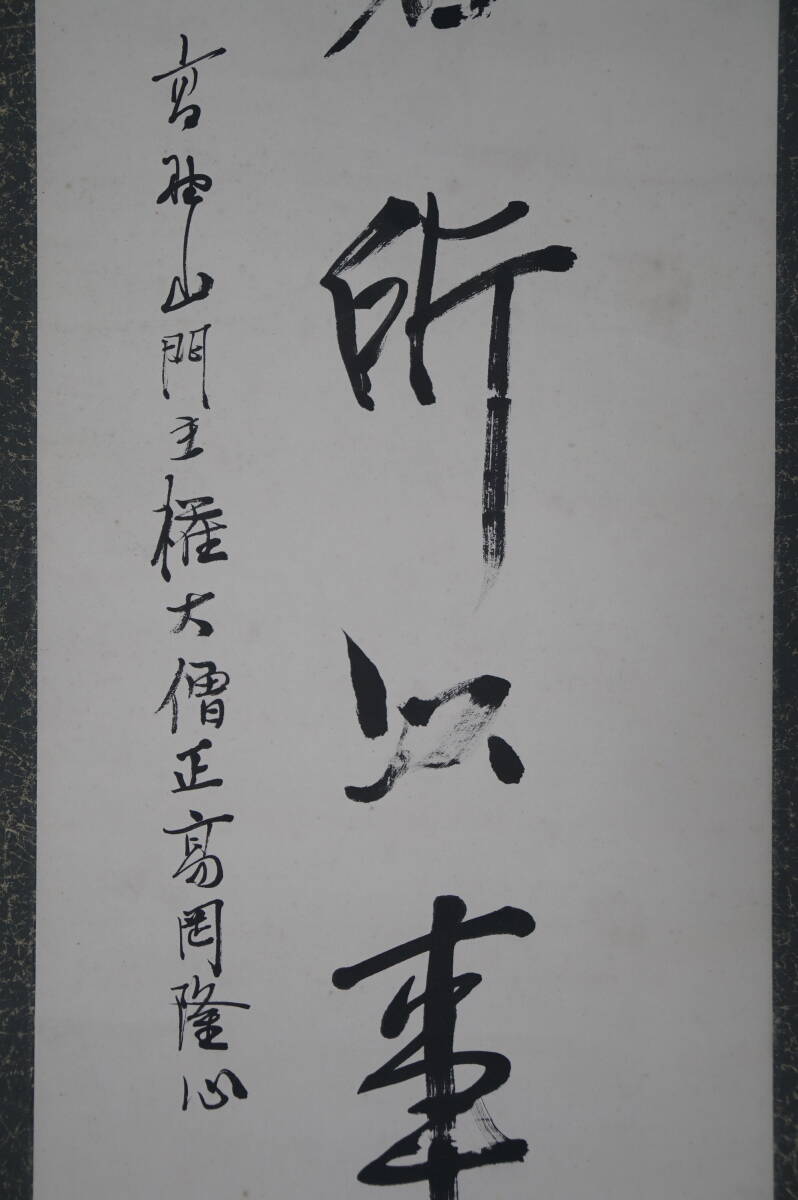 所以事
高野山門主権大僧正高岡隆心